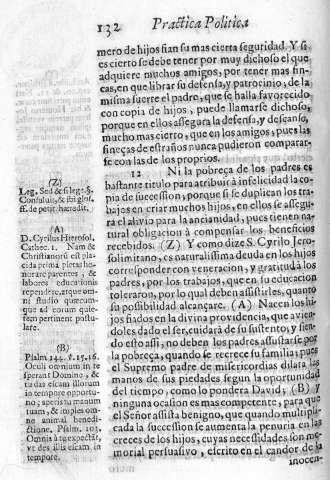 132 Practica Politica
mero de hijos fian su mas cierta seguridad. Y si
es cierto se debe tener por muy dichoso el que
adquiere muchos amigos, por tener mas fin-
cas, en que librar su defensa, y patrocinio, de la
misma suerte el padre, que se halla favorecido
con copia de hijos, puede llamarse dichoso,
porque en ellos assegura la defensa, y descanso,
mucho mas cierto, que en los amigos, pues las
finezas de estraños nunca pudieron comparar-
se con las de los proprios.
12 Ni la pobreça de los padres es
bastante titulo para atribuir à infelicidad la co-
pia de succession, porque si se duplican los tra-
bajos en criar muchos hijos, en ellos se assegu-
ra el alivio para la ancianidad, pues tienen na-
tural obligacion à compensar los beneficios
recebidos. (Z) Y como dize S. Cyrilo Jero-
solimitano, es naturalissima deuda en los hijos
corresponder con veneracion, y gratitud à los
padres, por los trabajos, que en su educacion
toleraron, por lo qual deben assistirles, quanto
su posibilidad alcançare. (A) Nacen los hi-
jos fiados en la divina providencia, que avien-
doles dado el ser, cuidarà de su sustento, y sien-
do esto assi, no deben los padres assustarse por
la pobreça, quando se recrece su familia, pues
el Supremo padre de misericordias dilara las
manos de sus piedades segun la oportunidad
del tiempo, como lo pondera David; (B) y
ninguna ocasion es mas competente, para que
el Señor assista benigno, que quando multipli-
cada la succession se aumenta la penuria en las
creces de los hijos, cuyas necessidades son me-
morial persuasivo, escrito en el candor de la
inocen-
(Z)
Leg. Sed & si lege. §.
Consuluit, & ibi gloss.
ff. de petit. hæredit.
(A)
D. Cyrilus Hierosol.
Cathec. 1. Nam &
Christianorũ est pla-
cida prima pietas ho-
norare parentes, &
labores educationis
rependere, atque om-
ni studio quæcum-
que ad eorum quie-
tem pertinent postu-
lare.
(B)
Psalm. 144. v. 15. 16.
Oculi omnium in te
sperant Domino, &
tu das escam illorum
in tempore opportu-
no; aperis tu manum
tuam, & imples om-
ne animal benedi-
ctione. Psalm. 103.
Omnia à te expectãt,
ut des illis escam in
tempore.